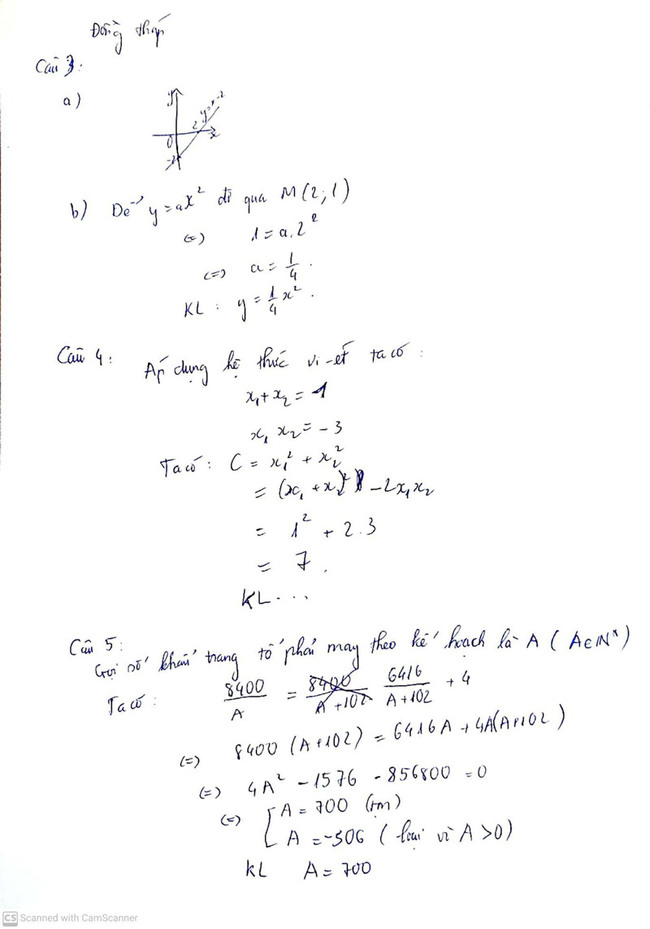 Đồng tháp
Câu 3:
a)
y
2
y=x-2
O
x
-2
b) Để y = ax² đi qua M(2;1)
(=) 1 = a.2²
(=) a = 1/4.
KL: y = 1/4 x².
Câu 4: Áp dụng hệ thức vi-ét ta có:
x₁ + x₂ = 1
x₁ x₂ = -3
Ta có: C = x₁² + x₂²
= (x₁ + x₂)² - 2x₁x₂
= 1² + 2.3
= 7.
KL...
Câu 5:
Gọi số khẩu trang tổ phải may theo kế hoạch là A (A∈N*)
Ta có: 8400/A = 8400/A+102 6416/A+102 + 4
(=) 8400(A+102) = 6416A + 4A(A+102)
(=) 4A² - 1576 - 856800 = 0
(=) [ A = 700 (tm)
A = -306 (loại vì A > 0)
KL A = 700
CS Scanned with CamScanner